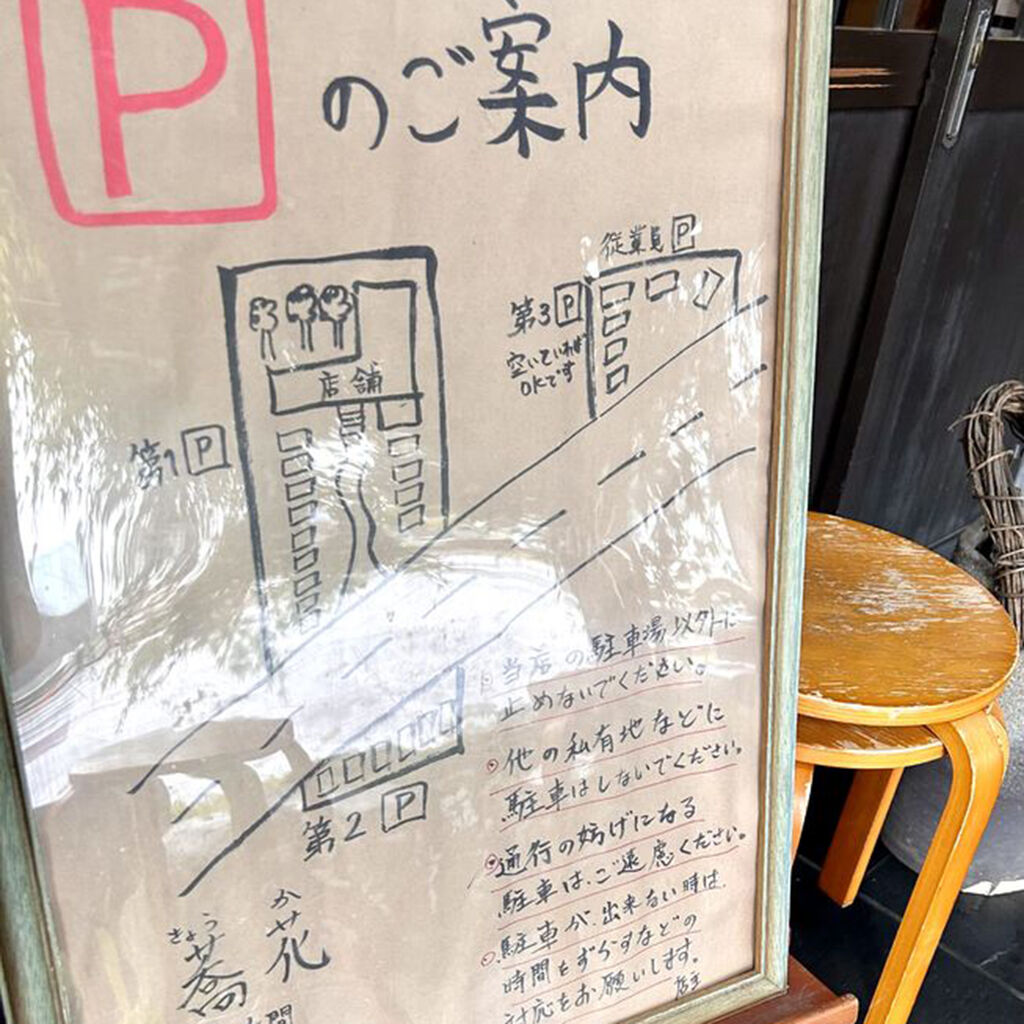 P のご案内
従業員 P
第3 P
空いていれば
OKです
店舗
第1 P
第2 P
当店の駐車場以外に
止めないでください。
他の私有地などに
駐車はしないでください。
通行の妨げになる
駐車は、ご遠慮ください。
駐車が、出来ない時は、
時間をずらすなどの
対応をお願いします。
店主
かせ
きょう
化
蕎